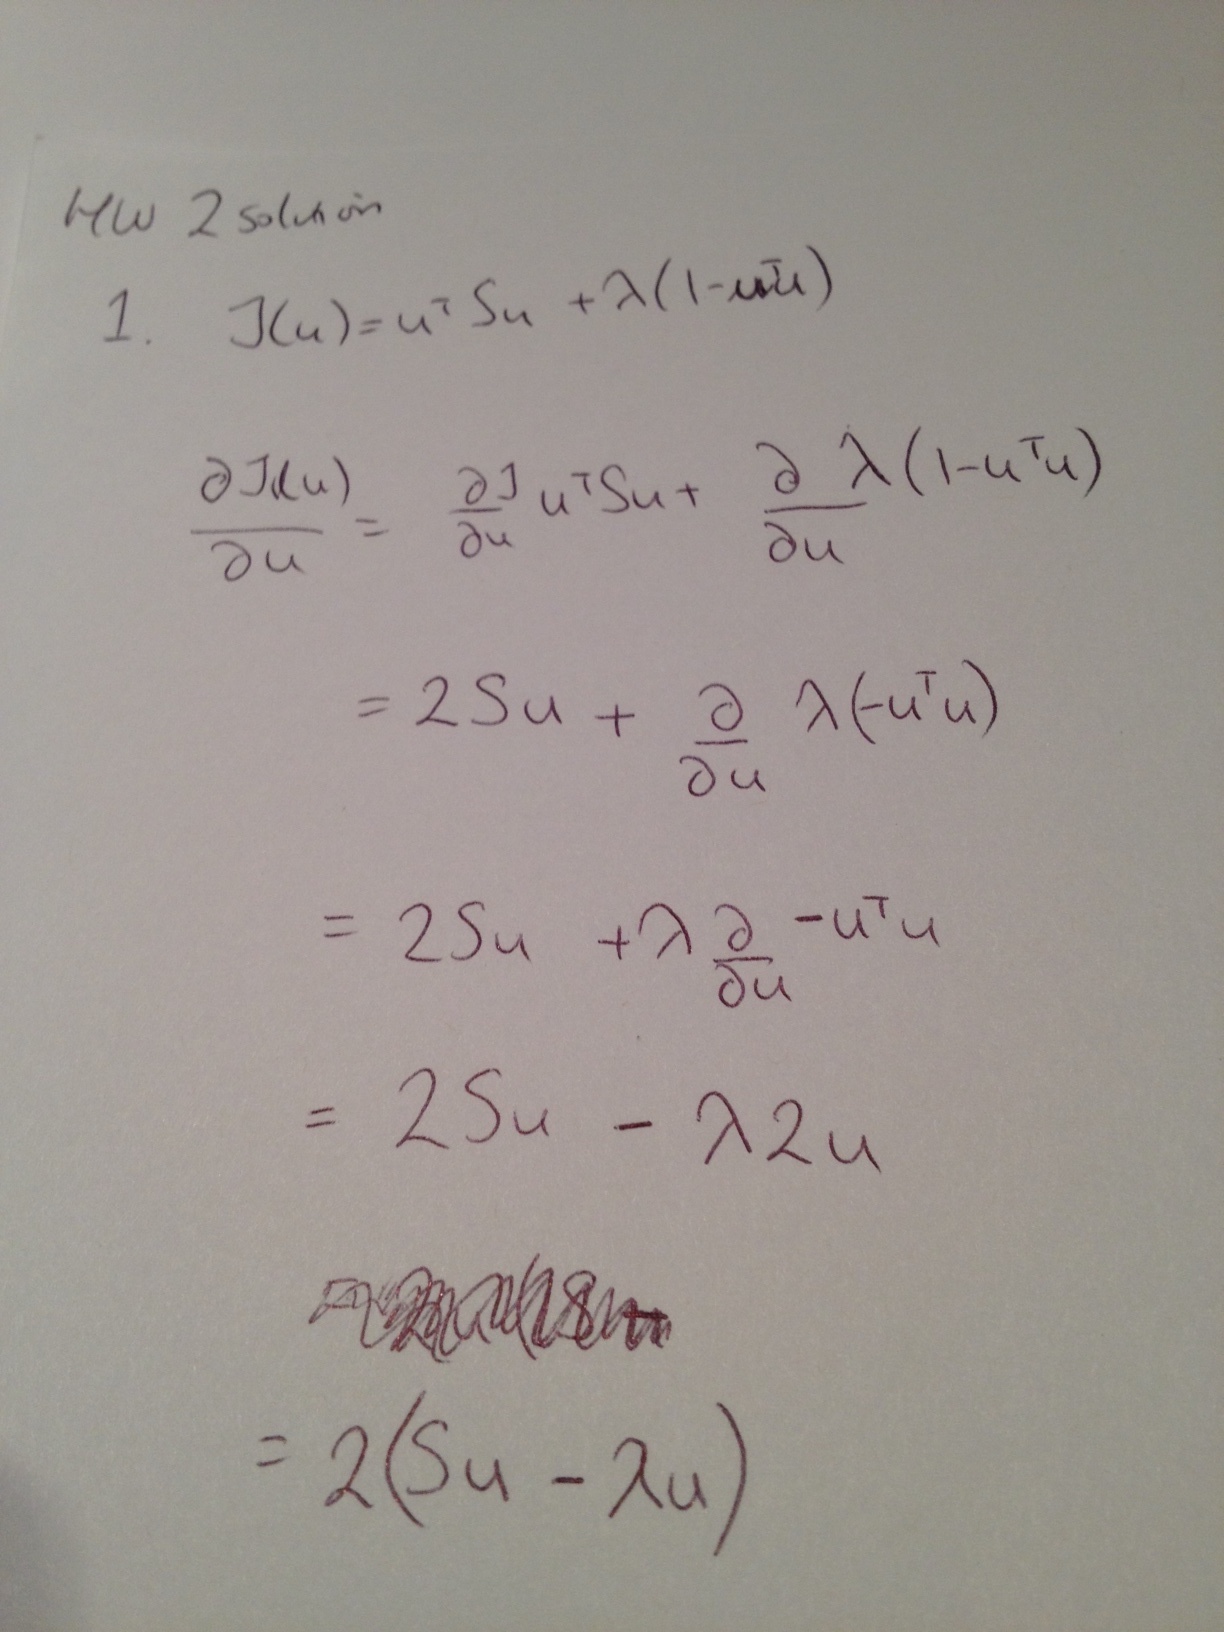 HW 2 solution
1. J(u) = uᵀSu + λ(1-uᵀu)
∂J(u)/∂u = ∂J/∂u uᵀSu + ∂/∂u λ(1-uᵀu)
= 2Su + ∂/∂u λ(-uᵀu)
= 2Su + λ ∂/∂u -uᵀu
= 2Su - λ2u
= 2(Su - λu)